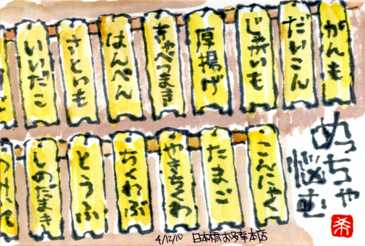 がんも
だいこん
じゃがいも
厚揚げ
きゃべまき
はんぺん
さといも
いいだこ
こんにゃく
たまご
やきちくわ
ちくわぶ
とうふ
しのだまき
めっちゃ
悩む
4/12/10 日本橋お多幸本店